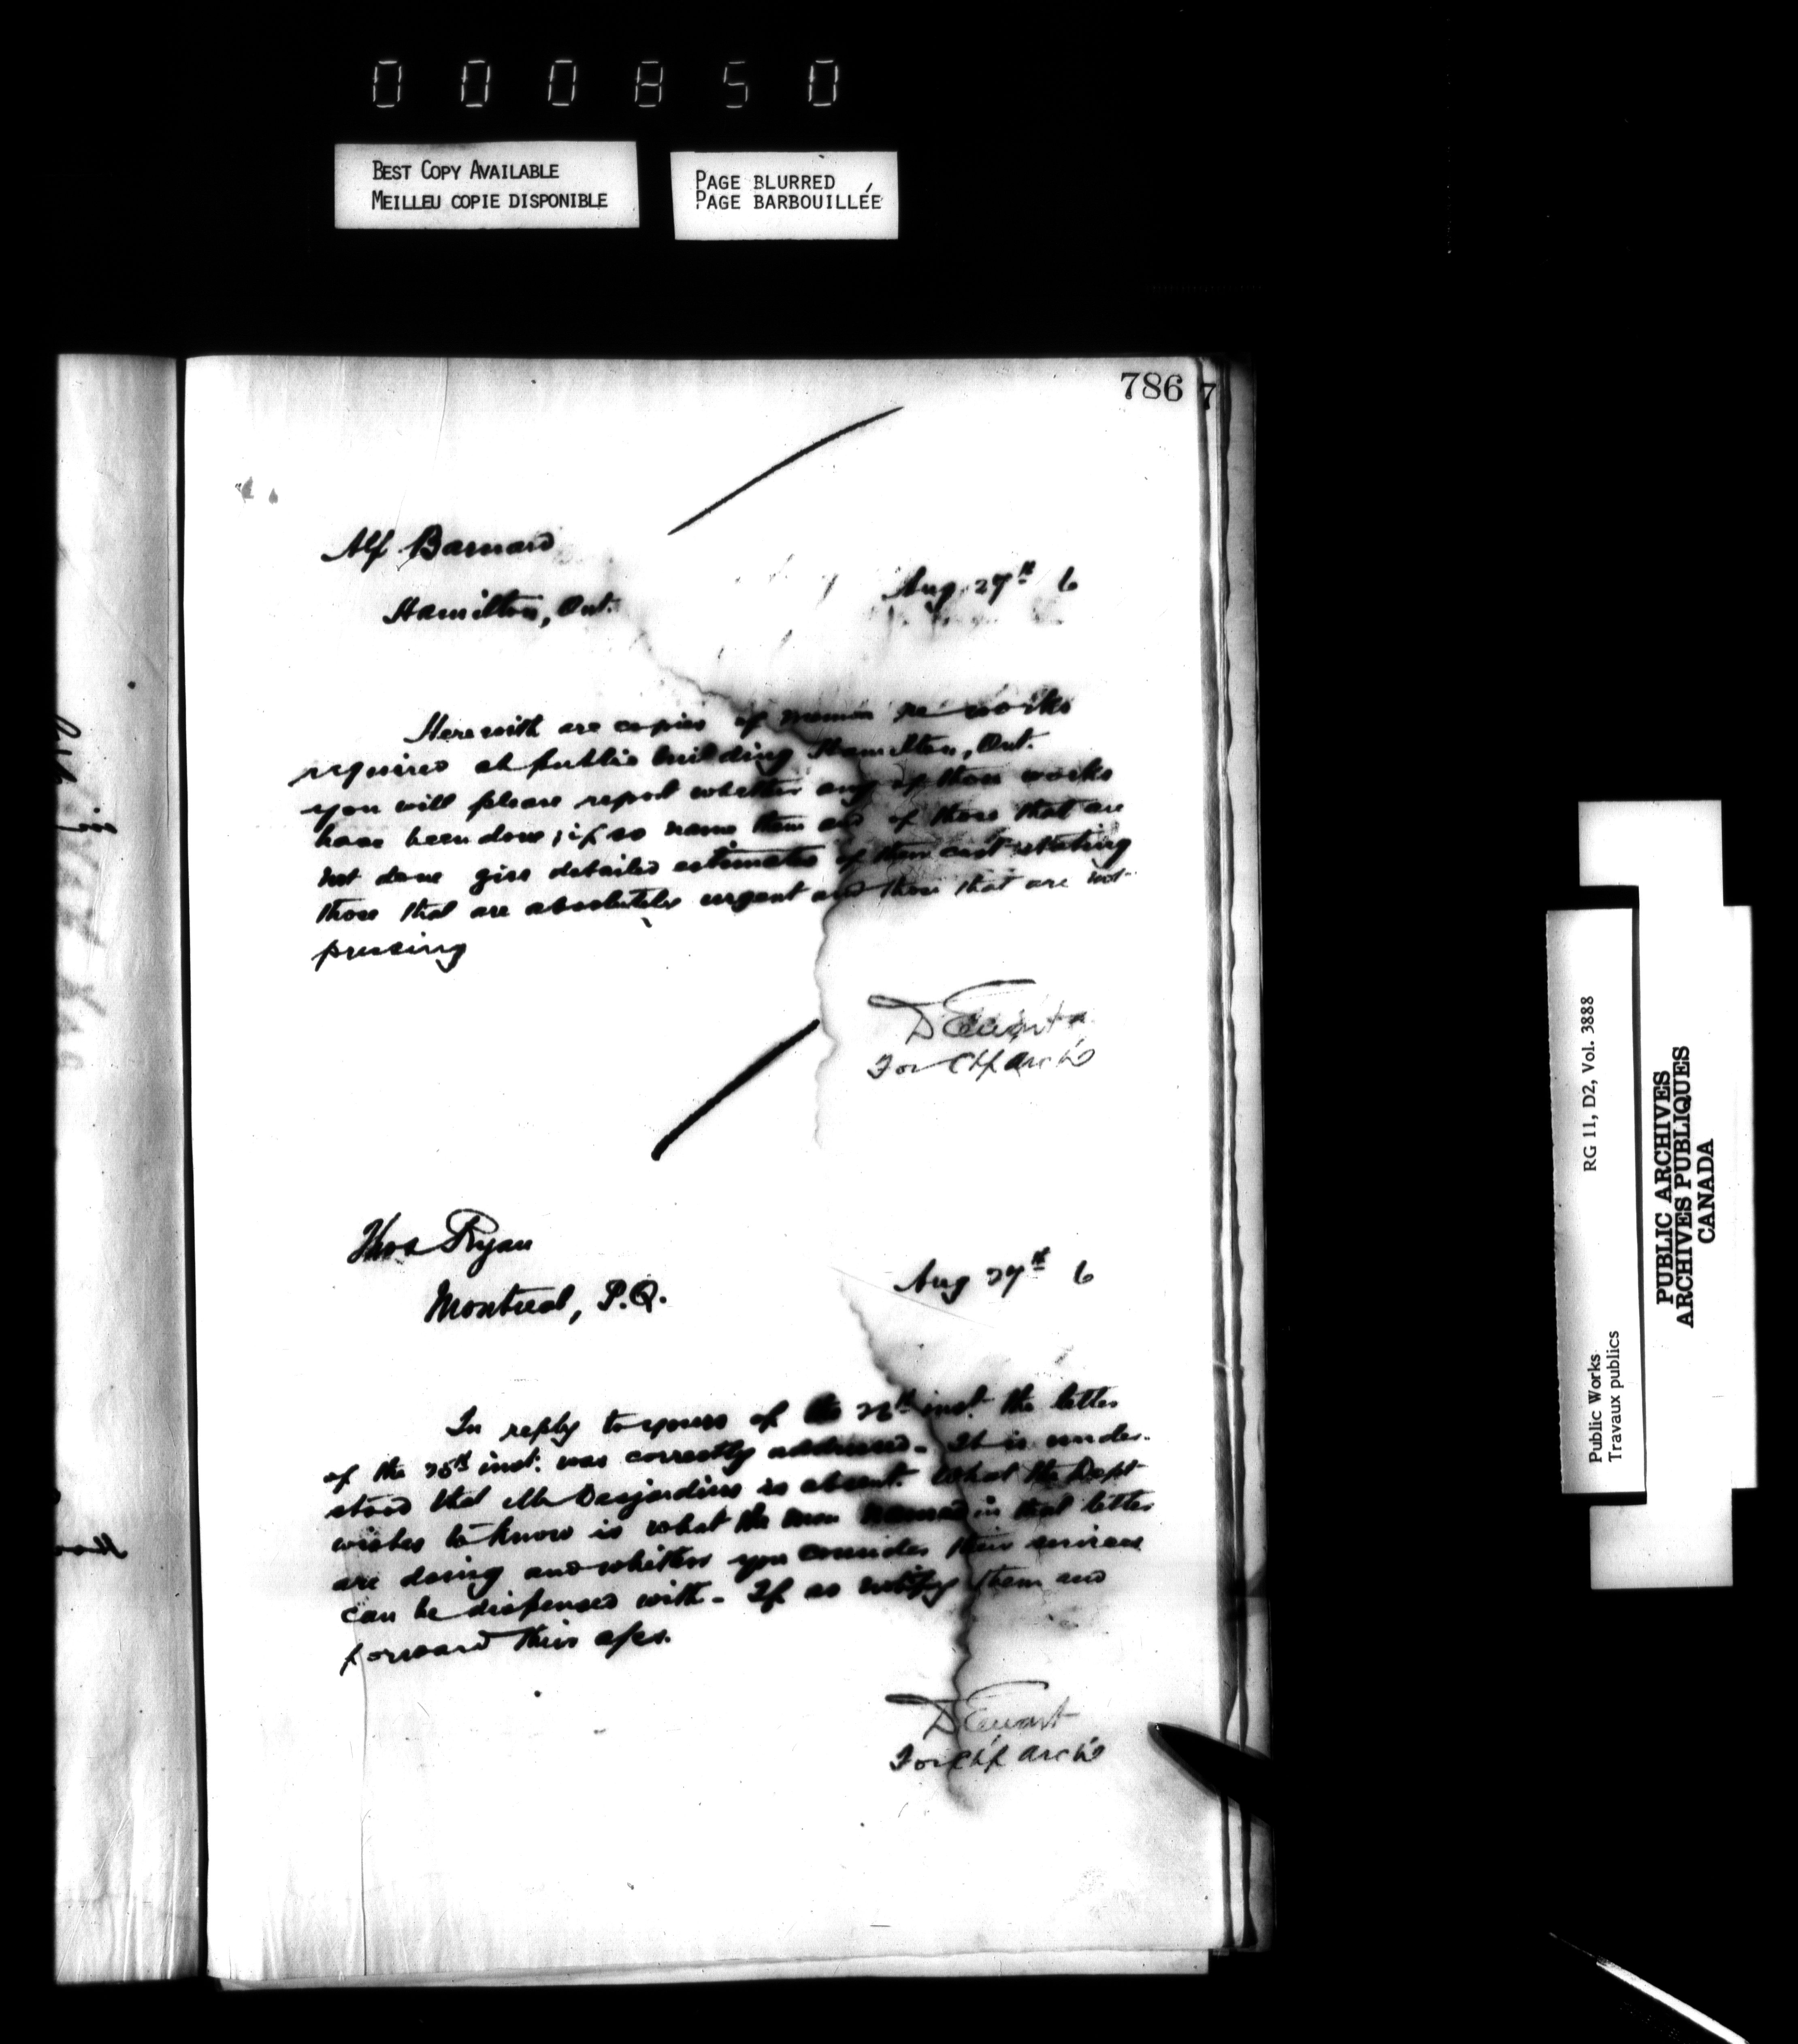 000850
BEST COPY AVAILABLE
MEILLEU COPIE DISPONIBLE
PAGE BLURRED
PAGE BARBOUILLÉE
786 7
Alf Barnard
Hamilton, Ont.
Aug 27th 6
Herewith are copies of memo re works
required at public building Hamilton, Ont.
you will please report whether any of those works
have been done; if so name them and of those that are
not done give detailed estimates of their cost stating
those that are absolutely urgent and those that are not
pressing
D Ewart
For Chf Arch't
Thos Ryan
Montreal, P.Q.
Aug 27th 6
In reply to yours of the inst. the letter
of the 25th inst. was correctly addressed. It is under-
stood that Mr Desjardins is absent. What the Dept
wishes to know is what the men named in that letter
are doing and whether you consider their services
can be dispensed with. If so notify them and
forward their
D Ewart
For Chf Arch't
Public Works
Travaux publics
RG 11, D2, Vol. 3888
PUBLIC ARCHIVES
ARCHIVES PUBLIQUES
CANADA